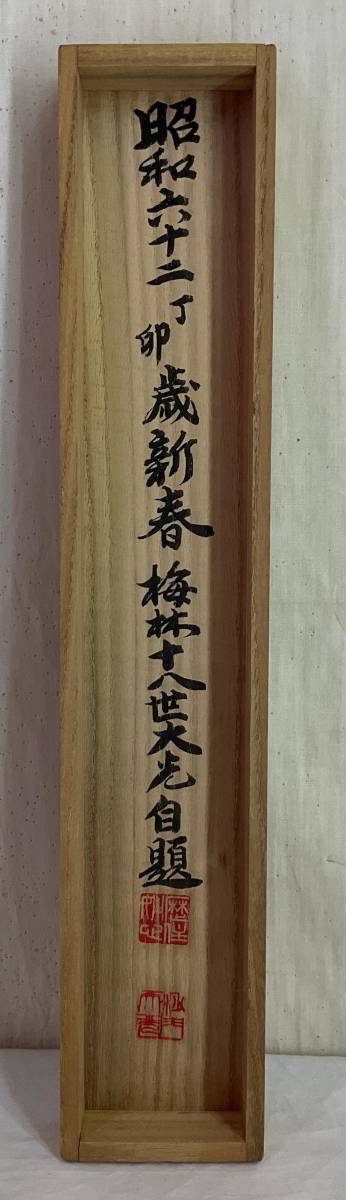 昭和六十二丁卯歳新春 梅林十八世大光自題